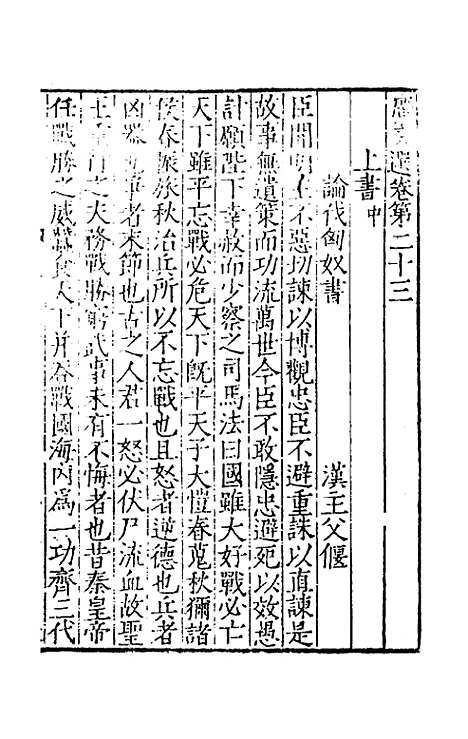 廣文選卷第二十三
上書中
論伐匈奴書 漢主父偃
臣聞明主不惡切諫以博觀忠臣不避重誅以直諫是
故事無遺策而功流萬世今臣不敢隱忠避死以效愚
計願陛下幸赦而少察之司馬法曰國雖大好戰必亡
天下雖平忘戰必危天下既平天子大愷春蒐秋獮諸
侯春振旅秋治兵所以不忘戰也且怒者逆德也兵者
凶器也爭者末節也古之人君一怒必伏尸流血故聖
王重行之夫務戰勝窮武事未有不悔者也昔秦皇帝
任戰勝之威蠶食天下并吞戰國海內為一功齊三代